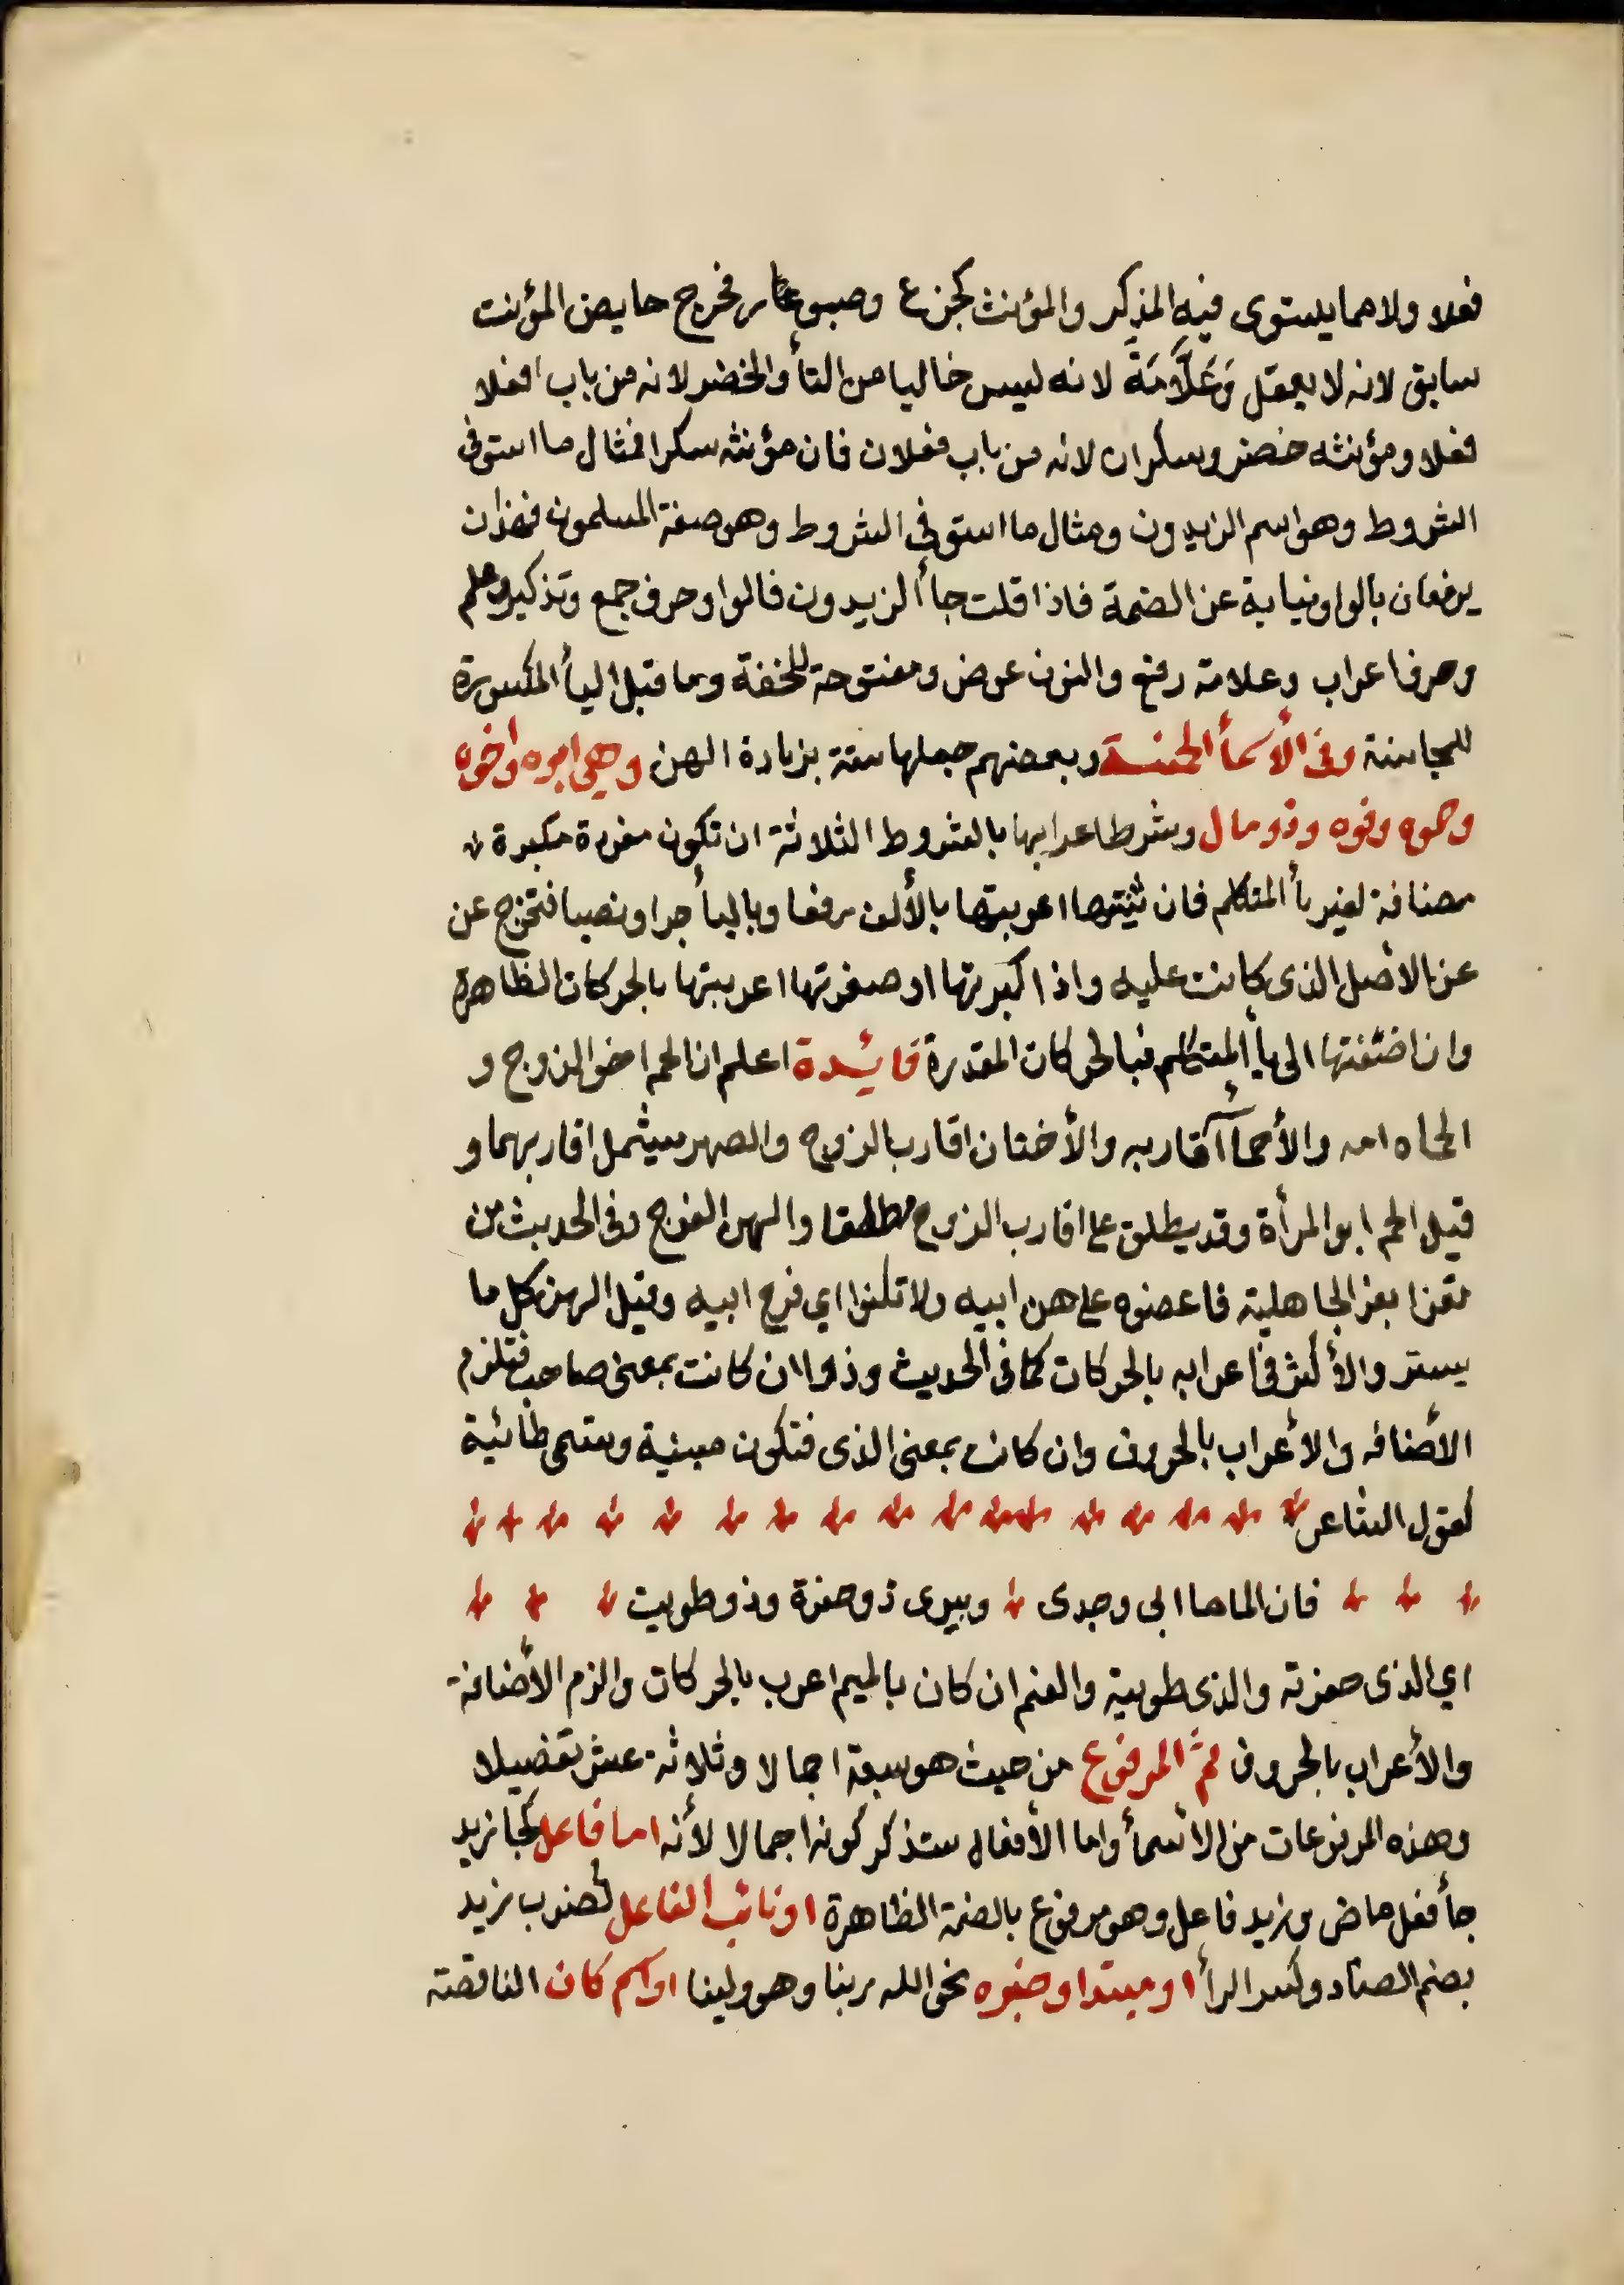 فعلا ولا مما يستوى فيه المذكر والمؤنث كجزع وصبور فخرج حايض المؤنث
سابق لانه لا يعقل وَعَلَّامَةً لانه ليس خاليا من التأ والخضر لانه من باب افعلا
فعلا ومؤنثه خضر وسكران لانه من باب فعلان فان مؤنثه سكرا فمثال ما استوفى
الشروط وهو اسم الزيدون ومثال ما استوفى الشروط وهو صفة المسلمون فهذان
يرفعان بالواو نيابة عن الضمة فاذا قلت جأ الزيدون فالواو حرف جمع وتذكير وعلم
وحرف اعراب وعلامة رفع والنون عوض ومفتوحة للخفة وما قبل اليأ المكسورة
للمجانسة وفى الأسمأ الخمسة وبعضهم جعلها ستة بزيادة الهن وهي ابوه واخوه
وحموه وفوه وذو مال وشرط اعرابها بالشروط الثلاثة ان تكون مفردة مكبرة
مضافة لغير يأ المتكلم فان ثنيتها اعربتها بالألف رفعا وباليأ جرا ونصبا فتخرج عن
عن الاصل الذى كانت عليه واذا كبرتها او صغرتها اعربتها بالحركات الظاهرة
وان اضفتها الى يأ المتكلم فبالحركات المقدرة فائدة اعلم ان الحم اخو الزوج و
الحماه امه والأحمأ اقاربه والأختان اقارب الزوج والصهر يشمل اقاربهما و
قيل الحم ابو المرأة وقد يطلق على اقارب الزوج مطلقا والهن الفرج وفى الحديث من
تعزا بعز الجاهلية فاعضوه على هن ابيه ولا تكنوا اي فرج ابيه وقيل الهن كل ما
يستر والأكثر فى اعرابه بالحركات كما فى الحديث وذوا ان كانت بمعنى صاحب فتلزم
الأضافه والاعراب بالحروف وان كانت بمعنى الذى فتكون مبنية وتسمى طائية
كقول الشاعر
فان الما ما ابى وجدى وبيرى ذو حفرة وذو طويت
اي الذى حفرته والذى طويته والفم ان كان بالميم اعرب بالحركات والزم الأضافة
والأعراب بالحروف ثمّ المرفوع من حيث هو سبعة اجمالا وثلاثة عشر تفضيلا
وهذه المرفوعات من الاسمأ واما الأفعال ستذكر كونه اجمالا لأنه اما فاعل كجا زيد
جأ فعل ماض وزيد فاعل وهو مرفوع بالضمة الظاهرة او نائب الفاعل كضرب زيد
بضم الضاد وكسر الرأ او مبتدا وخبره نحو الله ربنا وهو ولينا او اسم كان الناقصة